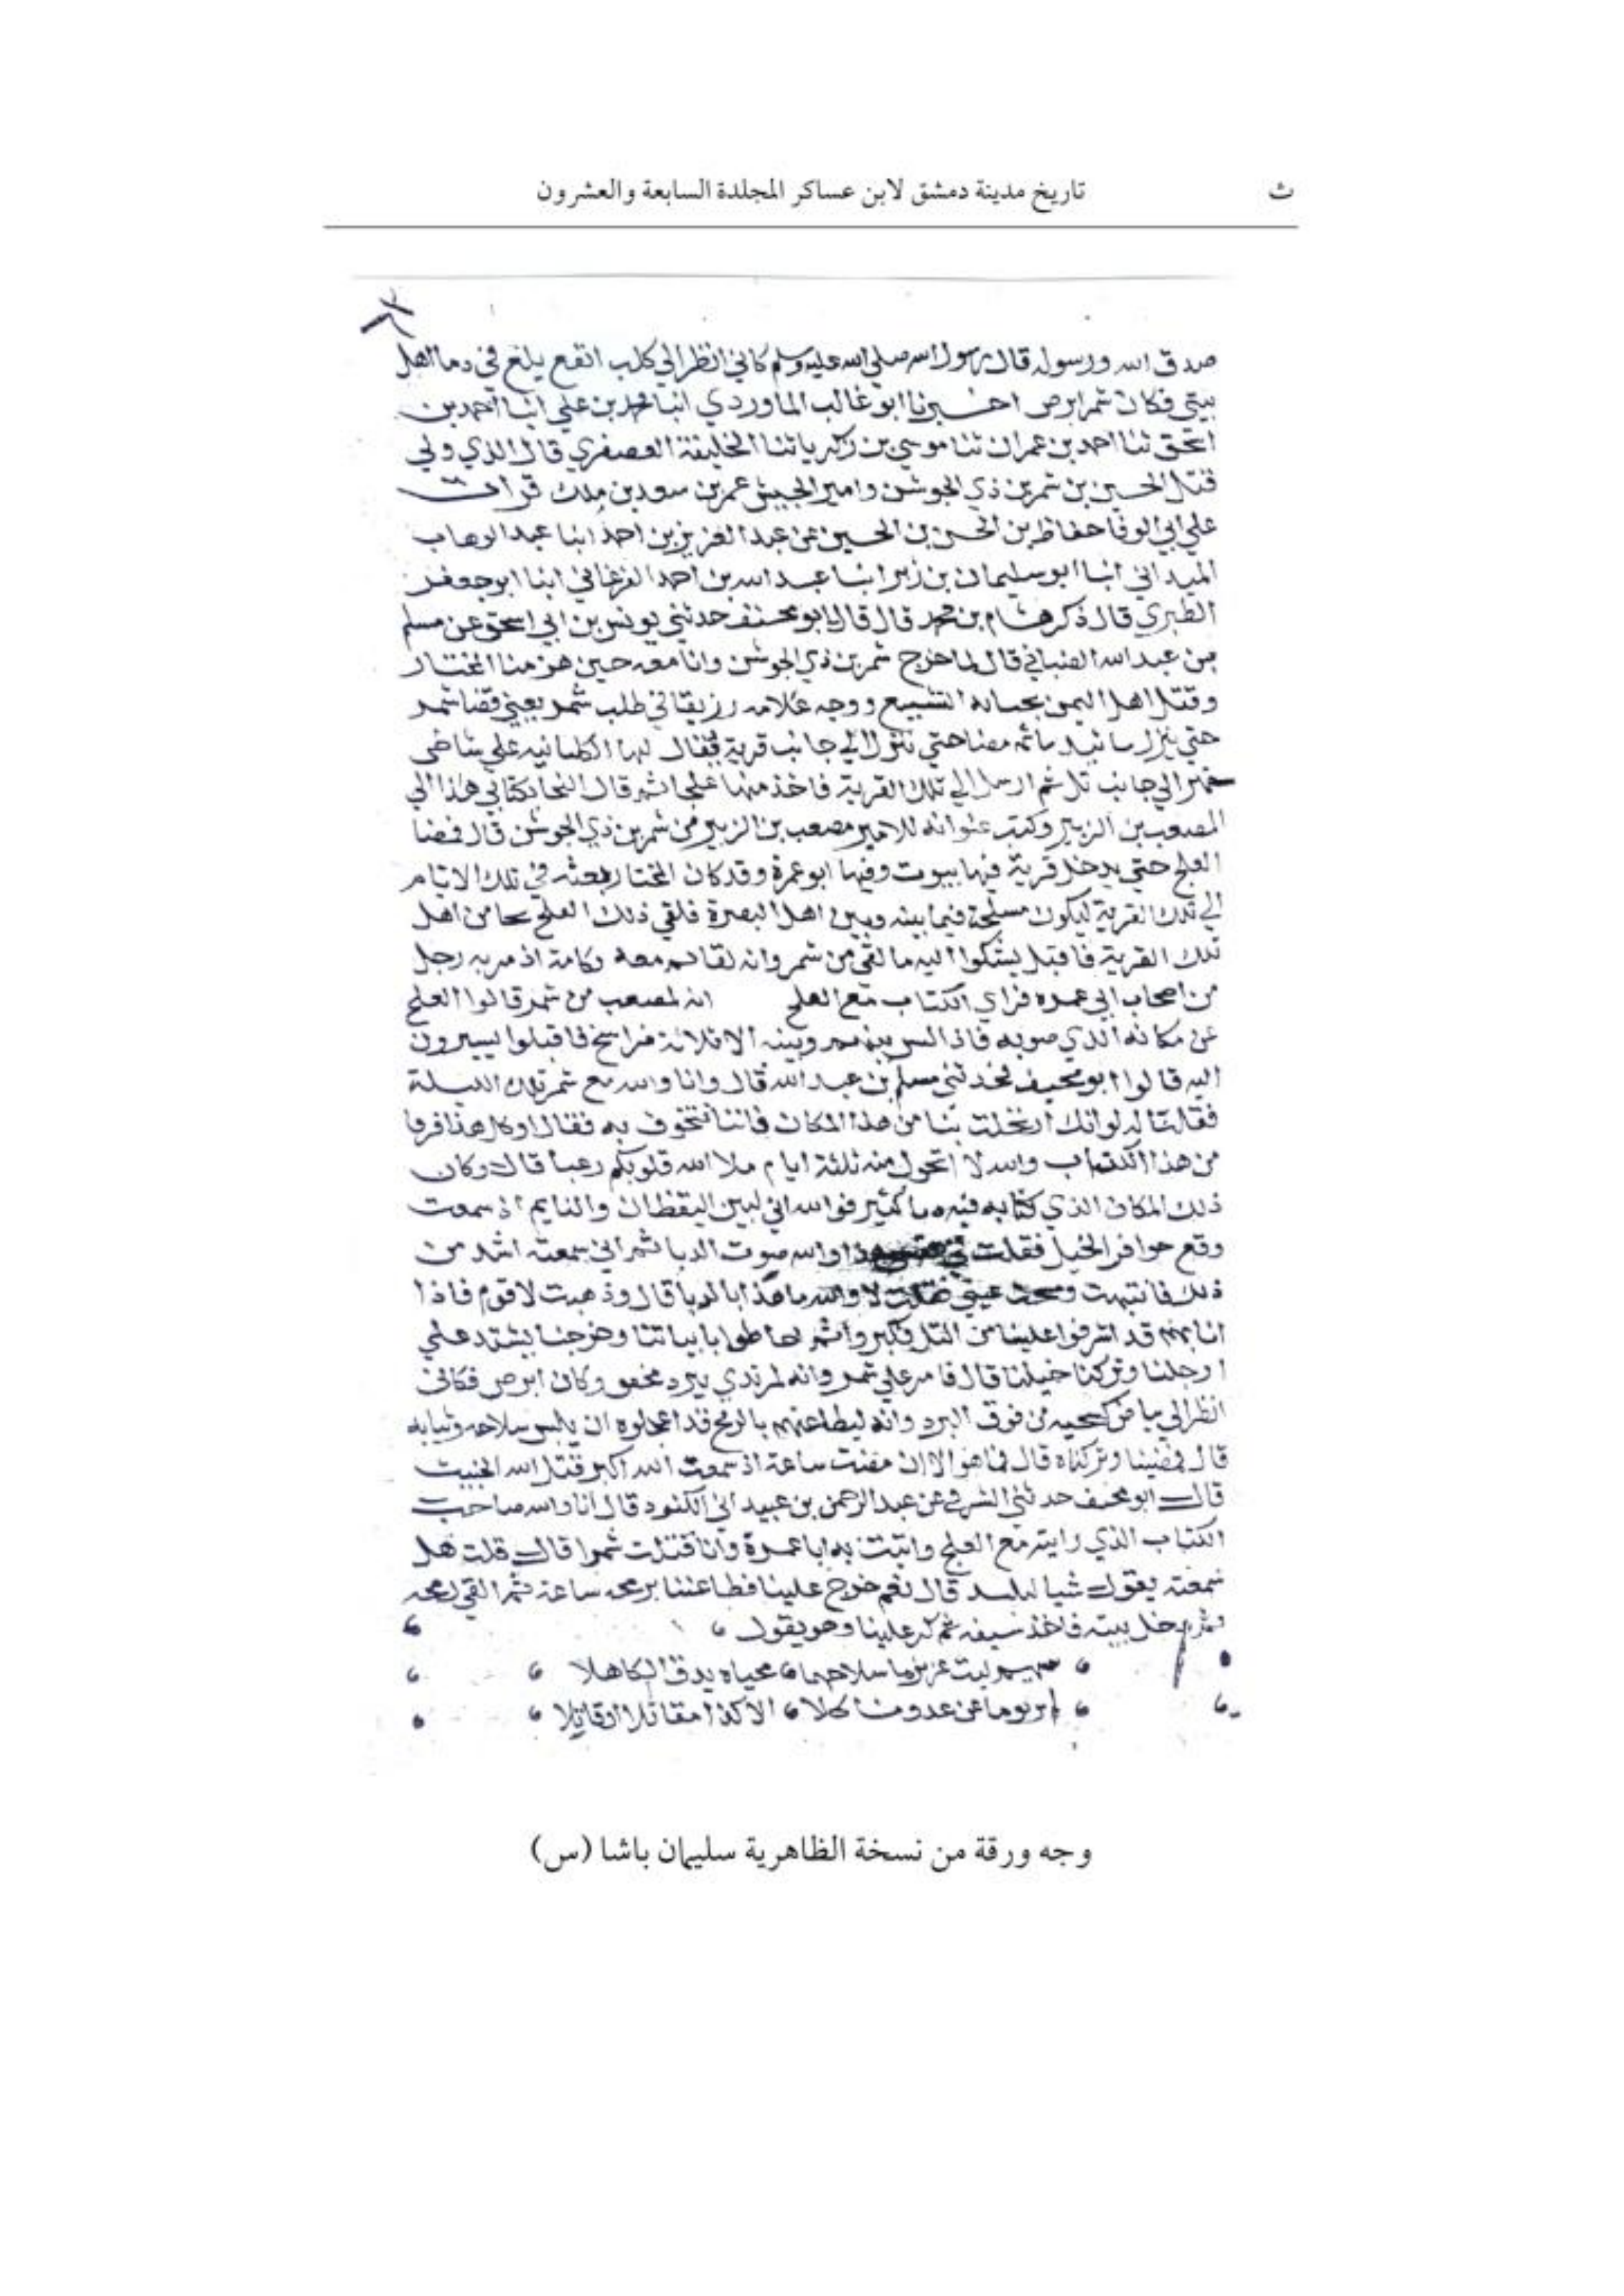 ث
تاريخ مدينة دمشق لابن عساكر المجلدة السابعة والعشرون
صدق الله ورسوله قال رسول الله صلي الله عليه وسلم كاني انظر الي كلب ابقع يلغ في دما اهل
بيتي فكان شمر ابرص اخبرنا ابو غالب الماوردي انبا محمد بن علي انبا احمد بن
اسحق ثنا احمد بن عمران ثنا موسي بن زكريا ثنا الخليفة العصفري قال الذي ولي
قتل الحسين بن شمر بن ذي الجوشن وامير الجيش عمر بن سعد بن ملك قرات
علي ابي الوفا حفاظ بن الحسن بن الحسين عن عبد العزيز بن احمد انبا عبد الوهاب
الميداني انبا ابو سليمان بن زبر انبا عبد الله بن احمد الفرغاني ابنا ابو جعفر
الطبري قال ذكر هشام بن محمد قال قال ابو محنف حدثني يونس بن ابي اسحق عن مسلم
بن عبد الله الضبابي قال لما خرج شمر بن ذي الجوشن وانا معه حين هزمنا المختار
وقتل اهل اليمن السبيع ووجه غلامه رزيقا في طلب شمر يعني فمضا شمر
حتي ينزل مضا حتي ننزل الي جانب قرية يقال لها الكلبانيه علي شاطي
الي جانب تل ثم ارسل الي تلك القرية فاخذ منها علجا ثم قال النجا بكتابي هذا الي
المصعب بن الزبير وكتب عنوانه للامير مصعب بن الزبير من شمر بن ذي الجوشن قال فمضا
العلج حتي يدخل قرية فيها بيوت وفيها ابو عمرة وقد كان المختار بعثه في تلك الايام
الي تلك القرية ليكون مسلحة فيما بينه وبين اهل البصرة فلقي ذلك العلج علجا من اهل
تلك القرية فاقبل يشكوا اليه ما لقي من شمر وانه لقائم معه يكلمه اذ مر به رجل
من اصحاب ابي عمره فراي الكتاب مع العلج انه لمصعب من شمر قالوا العلج
عن مكانه الذي هو به فاذا ليس بينهم وبينه الا ثلاثة فراسخ فاقبلوا يسيرون
اليه قالوا ابو محنف فحدثني مسلم بن عبد الله قال وانا والله مع شمر تلك الليلة
فقلنا له لو انك ارتحلت بنا من هذا المكان فاننا نتخوف به فقال اوكل هذا فرقا
من هذا الكذاب والله لا اتحول منه ثلثة ايام ملا الله قلوبكم رعبا قال وكان
ذلك المكان الذي كنا به فيه دبا كثير فوالله اني لبين اليقظان والنايم اذ سمعت
وقع حوافر الخيل فقلت في نفسي هذا والله صوت الدبا ثم اني سمعته اشد من
ذلك فانتبهت ومسحت عيني فقلت لا والله ما هذا بالدبا قال وذهبت لاقوم فاذا
انا بهم قد اشرفوا علينا من التل فكبروا ثم احاطوا بابياتنا وخرجنا نشتد علي
ارجلنا وتركنا خيلنا قال فامر علي شمر وانه لمرتدي ببرد محقق وكان ابرص فكاني
انظر الي بياض كشحيه من فوق البرد وانه ليطاعنهم بالرمح قد اعجلوه ان يلبس سلاحه وثيابه
قال فمضينا وتركناه قال فما هو الا ان مضت ساعة اذ سمعت الله اكبر قتل الله الخبيث
قال ابو محنف حدثني المشرقي عن عبد الرحمن بن عبيد ابي الكنود قال انا والله صاحب
الكتاب الذي رايته مع العلج واتيت به ابا عمرة وانا قتلت شمرا قال قلت هل
سمعته يقول شيا ليلتئذ قال نعم خرج علينا فطاعننا برمحه ساعة ثم القي رمحه
ثم دخل بيته فاخذ سيفه ثم كر علينا وهو يقول
عرين باسلا محياه يدق الكاهلا
لم ير يوما عن عدو ناكلا الا كذا مقاتلا او قاتلا
وجه ورقة من نسخة الظاهرية سليمان باشا (س)